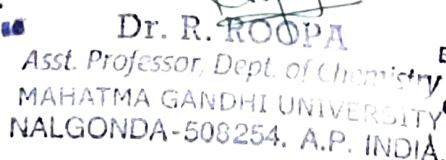 Dr. R. ROOPA
Asst. Professor, Dept. of Chemistry
MAHATMA GANDHI UNIVERSITY
NALGONDA-508254. A.P. INDIA